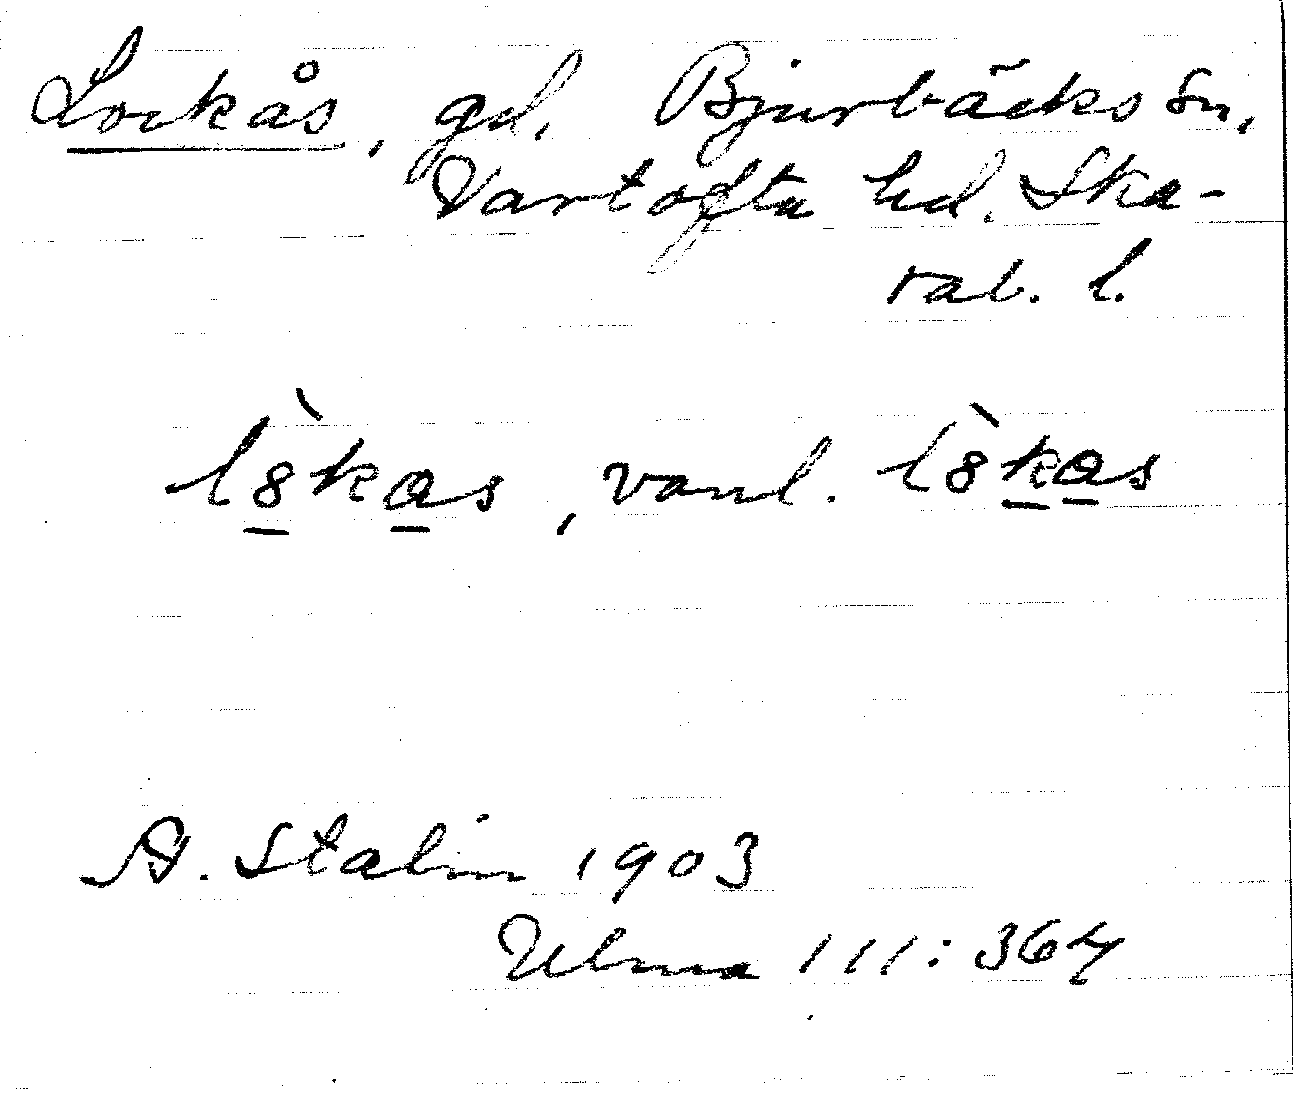 Lockås, gd. Bjurbäcks sn,
Vartofta hd. Ska-
rab. l.
l8̀kas, vanl. l8̀kas
A. Stalin 1903
Ulma 111:364